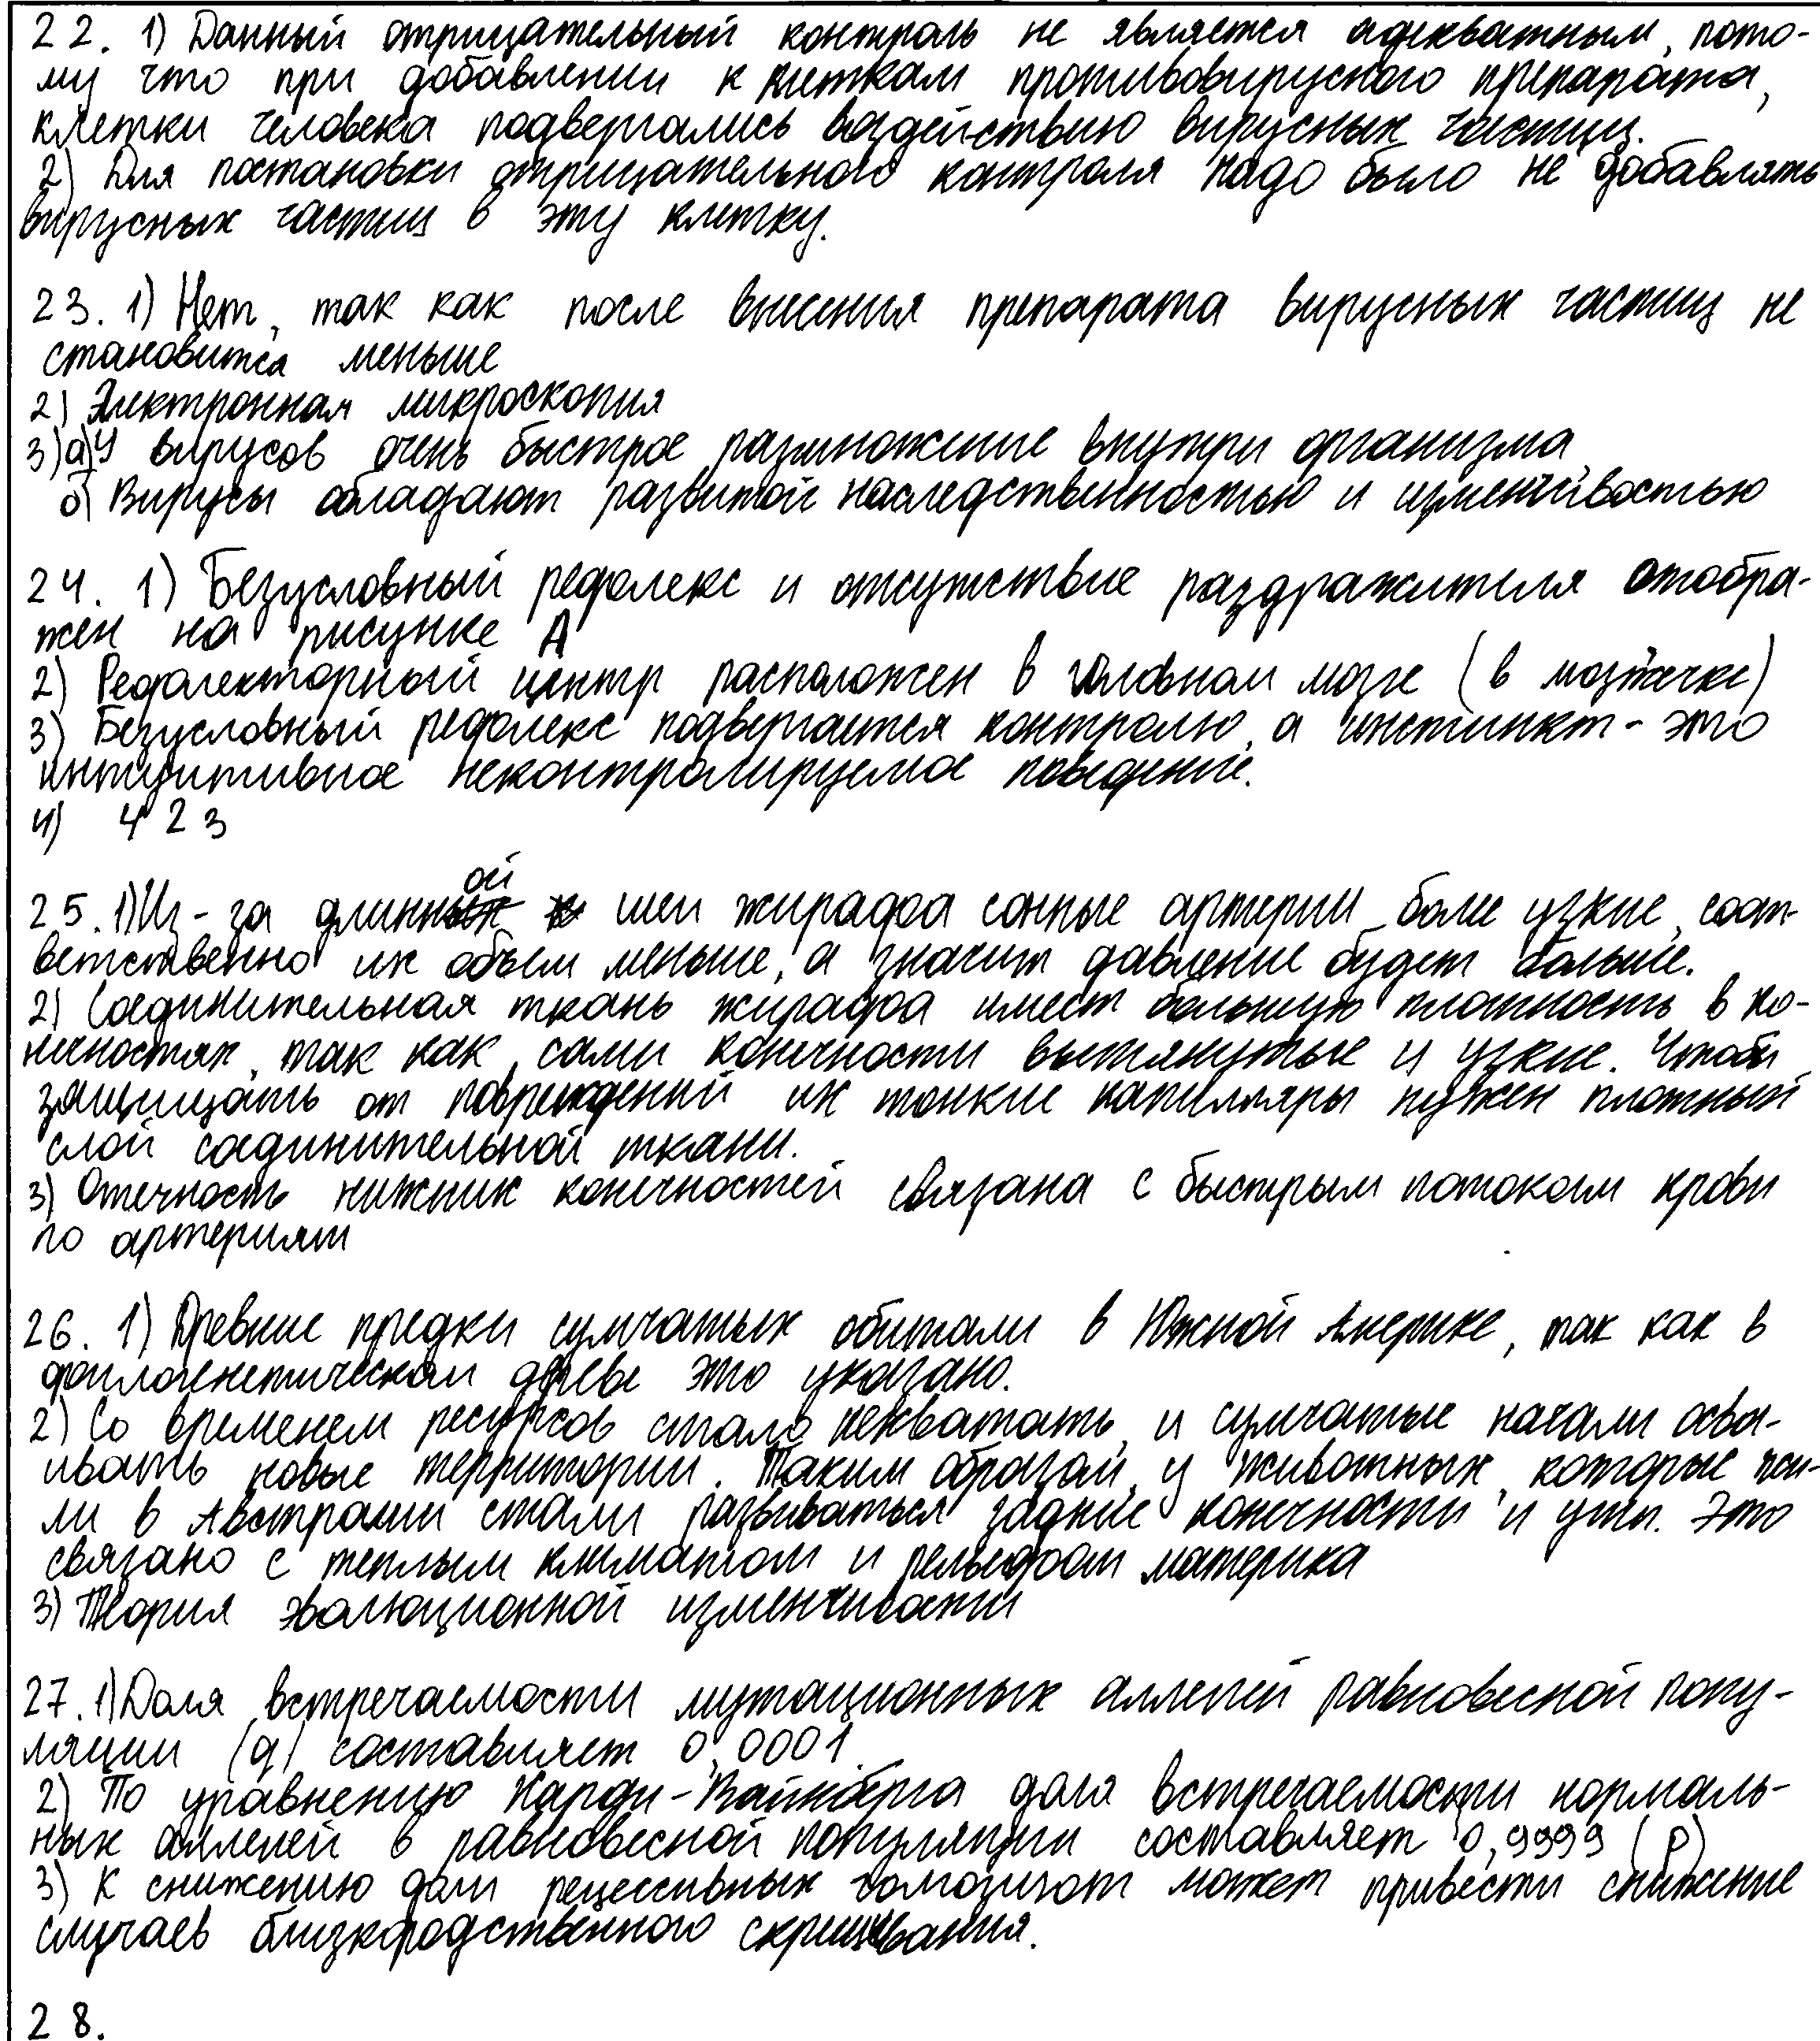 22. 1) Данный отрицательный контроль не является адекватным, пото-
му что при добавлении к клеткам противовирусного препарата,
клетки человека подвергались воздействию вирусных частиц.
2) Для постановки отрицательного контроля надо было не добавлять
вирусных частиц в эту клетку.
23. 1) Нет, так как после внесения препарата вирусных частиц не
становится меньше
2) Электронная микроскопия
3) а) У вирусов очень быстрое размножение внутри организма
б) Вирусы обладают развитой наследственностью и изменчивостью
24. 1) Безусловный рефлекс и отсутствие раздражителя отобра-
жен на рисунке А
2) Рефлекторный центр расположен в головном мозге (в мозжечке)
3) Безусловный рефлекс подвергается контролю, а инстинкт - это
интуитивное неконтролируемое поведение.
4) 4 2 3
25. 1) Из-за длинной шеи жирафа сонные артерии более узкие, соот-
ветственно их объем меньше, а значит давление будет больше.
2) Соединительная ткань жирафа имеет большую плотность в ко-
нечностях, так как сами конечности вытянутые и узкие. Чтобы
защищать от повреждений их тонкие капилляры нужен плотный
слой соединительной ткани.
3) Отечность нижних конечностей связана с быстрым потоком крови
по артериям
26. 1) Древние предки сумчатых обитали в Южной Америке, так как в
филогенетическом древе это указано.
2) Со временем ресурсов стало нехватать, и сумчатые начали осва-
ивать новые территории. Таким образом, у животных, которые жи-
ли в Австралии стали развиваться задние конечности и уши. Это
связано с теплым климатом и рельефом материка
3) Теория эволюционной изменчивости
27. 1) Доля встречаемости мутационных аллелей равновесной попу-
ляции (q) составляет 0,0001
2) По уравнению Харди-Вайнберга доля встречаемости нормаль-
ных аллелей в равновесной популяции составляет 0,9999 (p)
3) К снижению доли рецессивных гомозигот может привести снижение
случаев близкородственного скрещивания.
28.